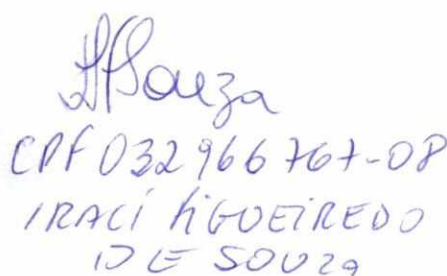 IFSouza
CPF 032966767-08
IRACI FIGUEIREDO
DE SOUZA